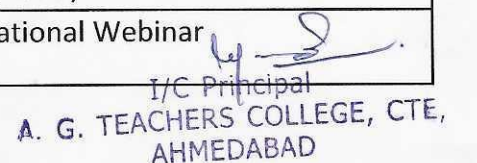 ational Webinar
I/C Principal
A. G. TEACHERS COLLEGE, CTE,
AHMEDABAD